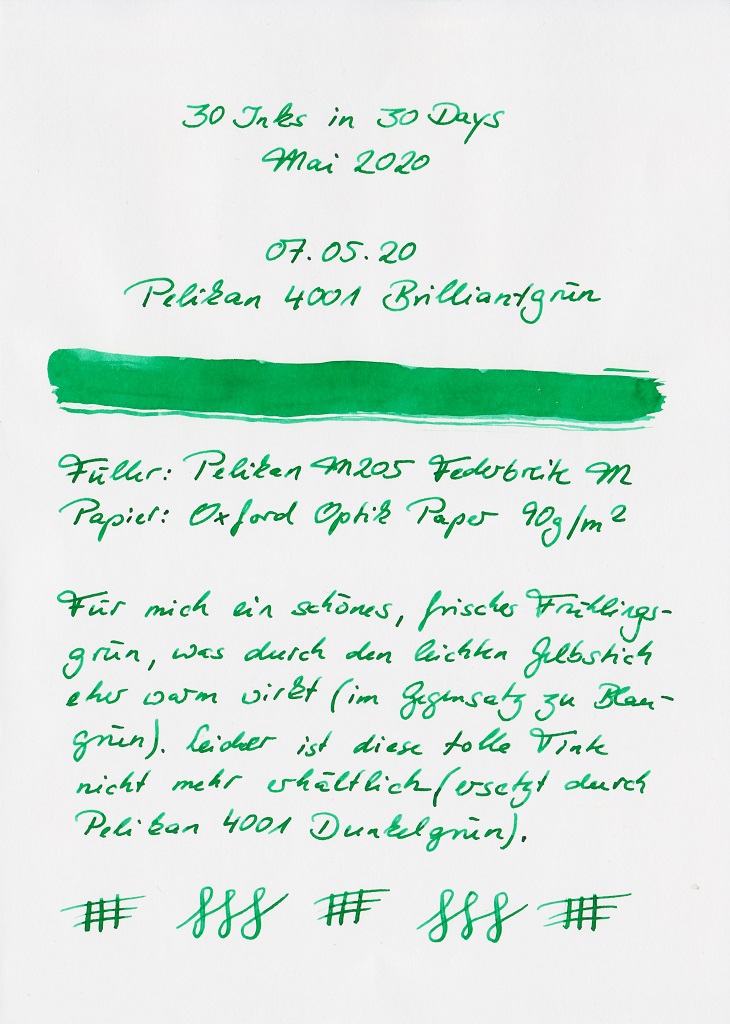 30 Inks in 30 Days
Mai 2020
07.05.20
Pelikan 4001 Brilliantgrün
Füller: Pelikan M205 Federbreite M
Papier: Oxford Optik Paper 90g/m²
Für mich ein schönes, frisches Frühlings-
grün, was durch den leichten Gelbstich
eher warm wirkt (im Gegensatz zu Blau-
grün). Leider ist diese tolle Tinte
nicht mehr erhältlich (ersetzt durch
Pelikan 4001 Dunkelgrün).